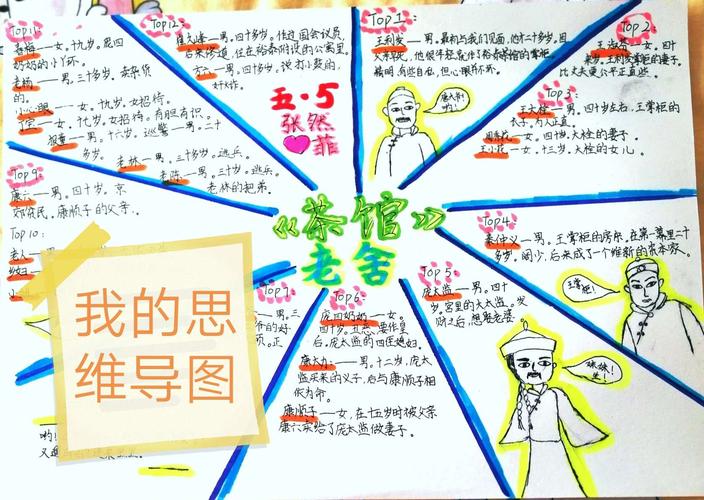 Top11:
春梅——女。十九岁。庞四
奶奶的小丫环。
老杨——男，三十多岁。卖杂货
的。
小心眼——女。十九岁。女招待。
丁宝——女。十七岁。女招待。有胆有识。
多岁。老林——男。三十岁。逃兵。
老陈——男。三十岁。逃兵。
老林的把弟。
Top12:
男。四十多岁。任过国会议员，
后来修道，住在裕泰附设的公寓里。
方六——男。四十多岁。打小鼓的，
五·5
张然
菲
Top1:
王利发——男。最初与我们见面，他才二十多岁。因
父亲早死，他很年轻就作了裕泰茶馆的掌柜。
精明，有些自私，但心眼不坏。
Top 2
女。四十
来岁。王利发掌柜的妻子。
比丈夫更公平正直些。
Top 3
王大拴——男。四十岁左右，王掌柜的
长子。为人正直。
周秀花——女。四十岁。大拴的妻子。
王小花——女。十三岁。大拴的女儿。
Top4:
秦仲义——男。王掌柜的房东。在第一幕里二十
多岁。阔少，后来成了个维新的资本家。
王掌柜!
Top 5:
庞太监——男。四十
岁。宫里的大太监。发
财之后，想娶老婆。
Top6:
庞四奶奶——女。
四十岁。丑恶，要作皇
后。庞太监的四侄媳妇。
康大力——男。十二岁。庞太
监买来的义子，后与康顺子相
依为命。
康顺子——女，在十五岁时被父亲
康六卖给了庞太监做妻子。
Top9:
康六——男。四十岁。京
郊贫民。康顺子的父亲。
Top10:
老人
《茶馆》
老舍
我的思
维导图